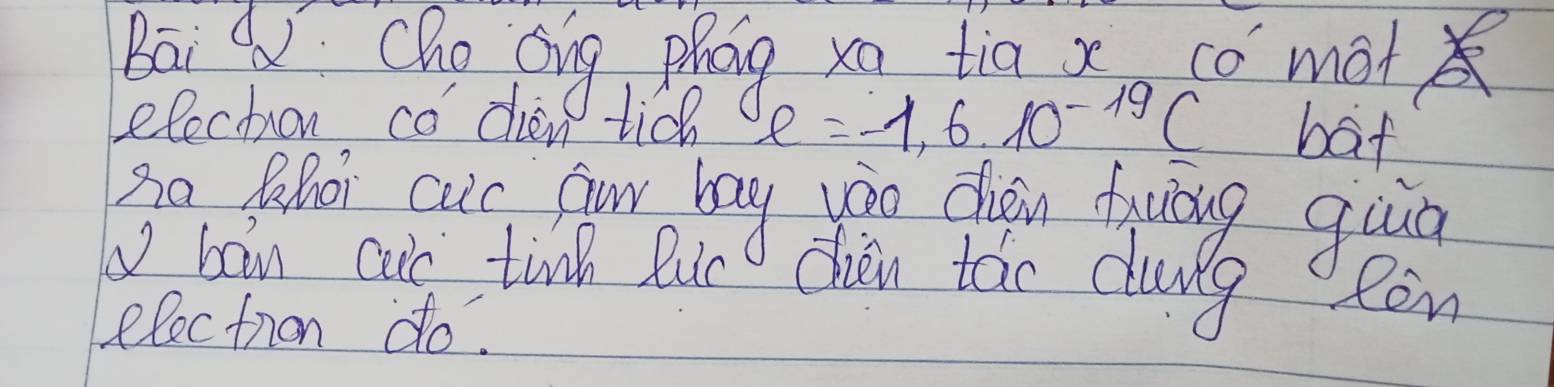 Bài 2: Cho ống phóng xạ tia x có một
electron có điện tích e = -1,6.10⁻¹⁹C bật
ra khỏi cực âm bay vào điện trường giữa
2 bản cực tính lực điện tác dụng lên
electron đó.